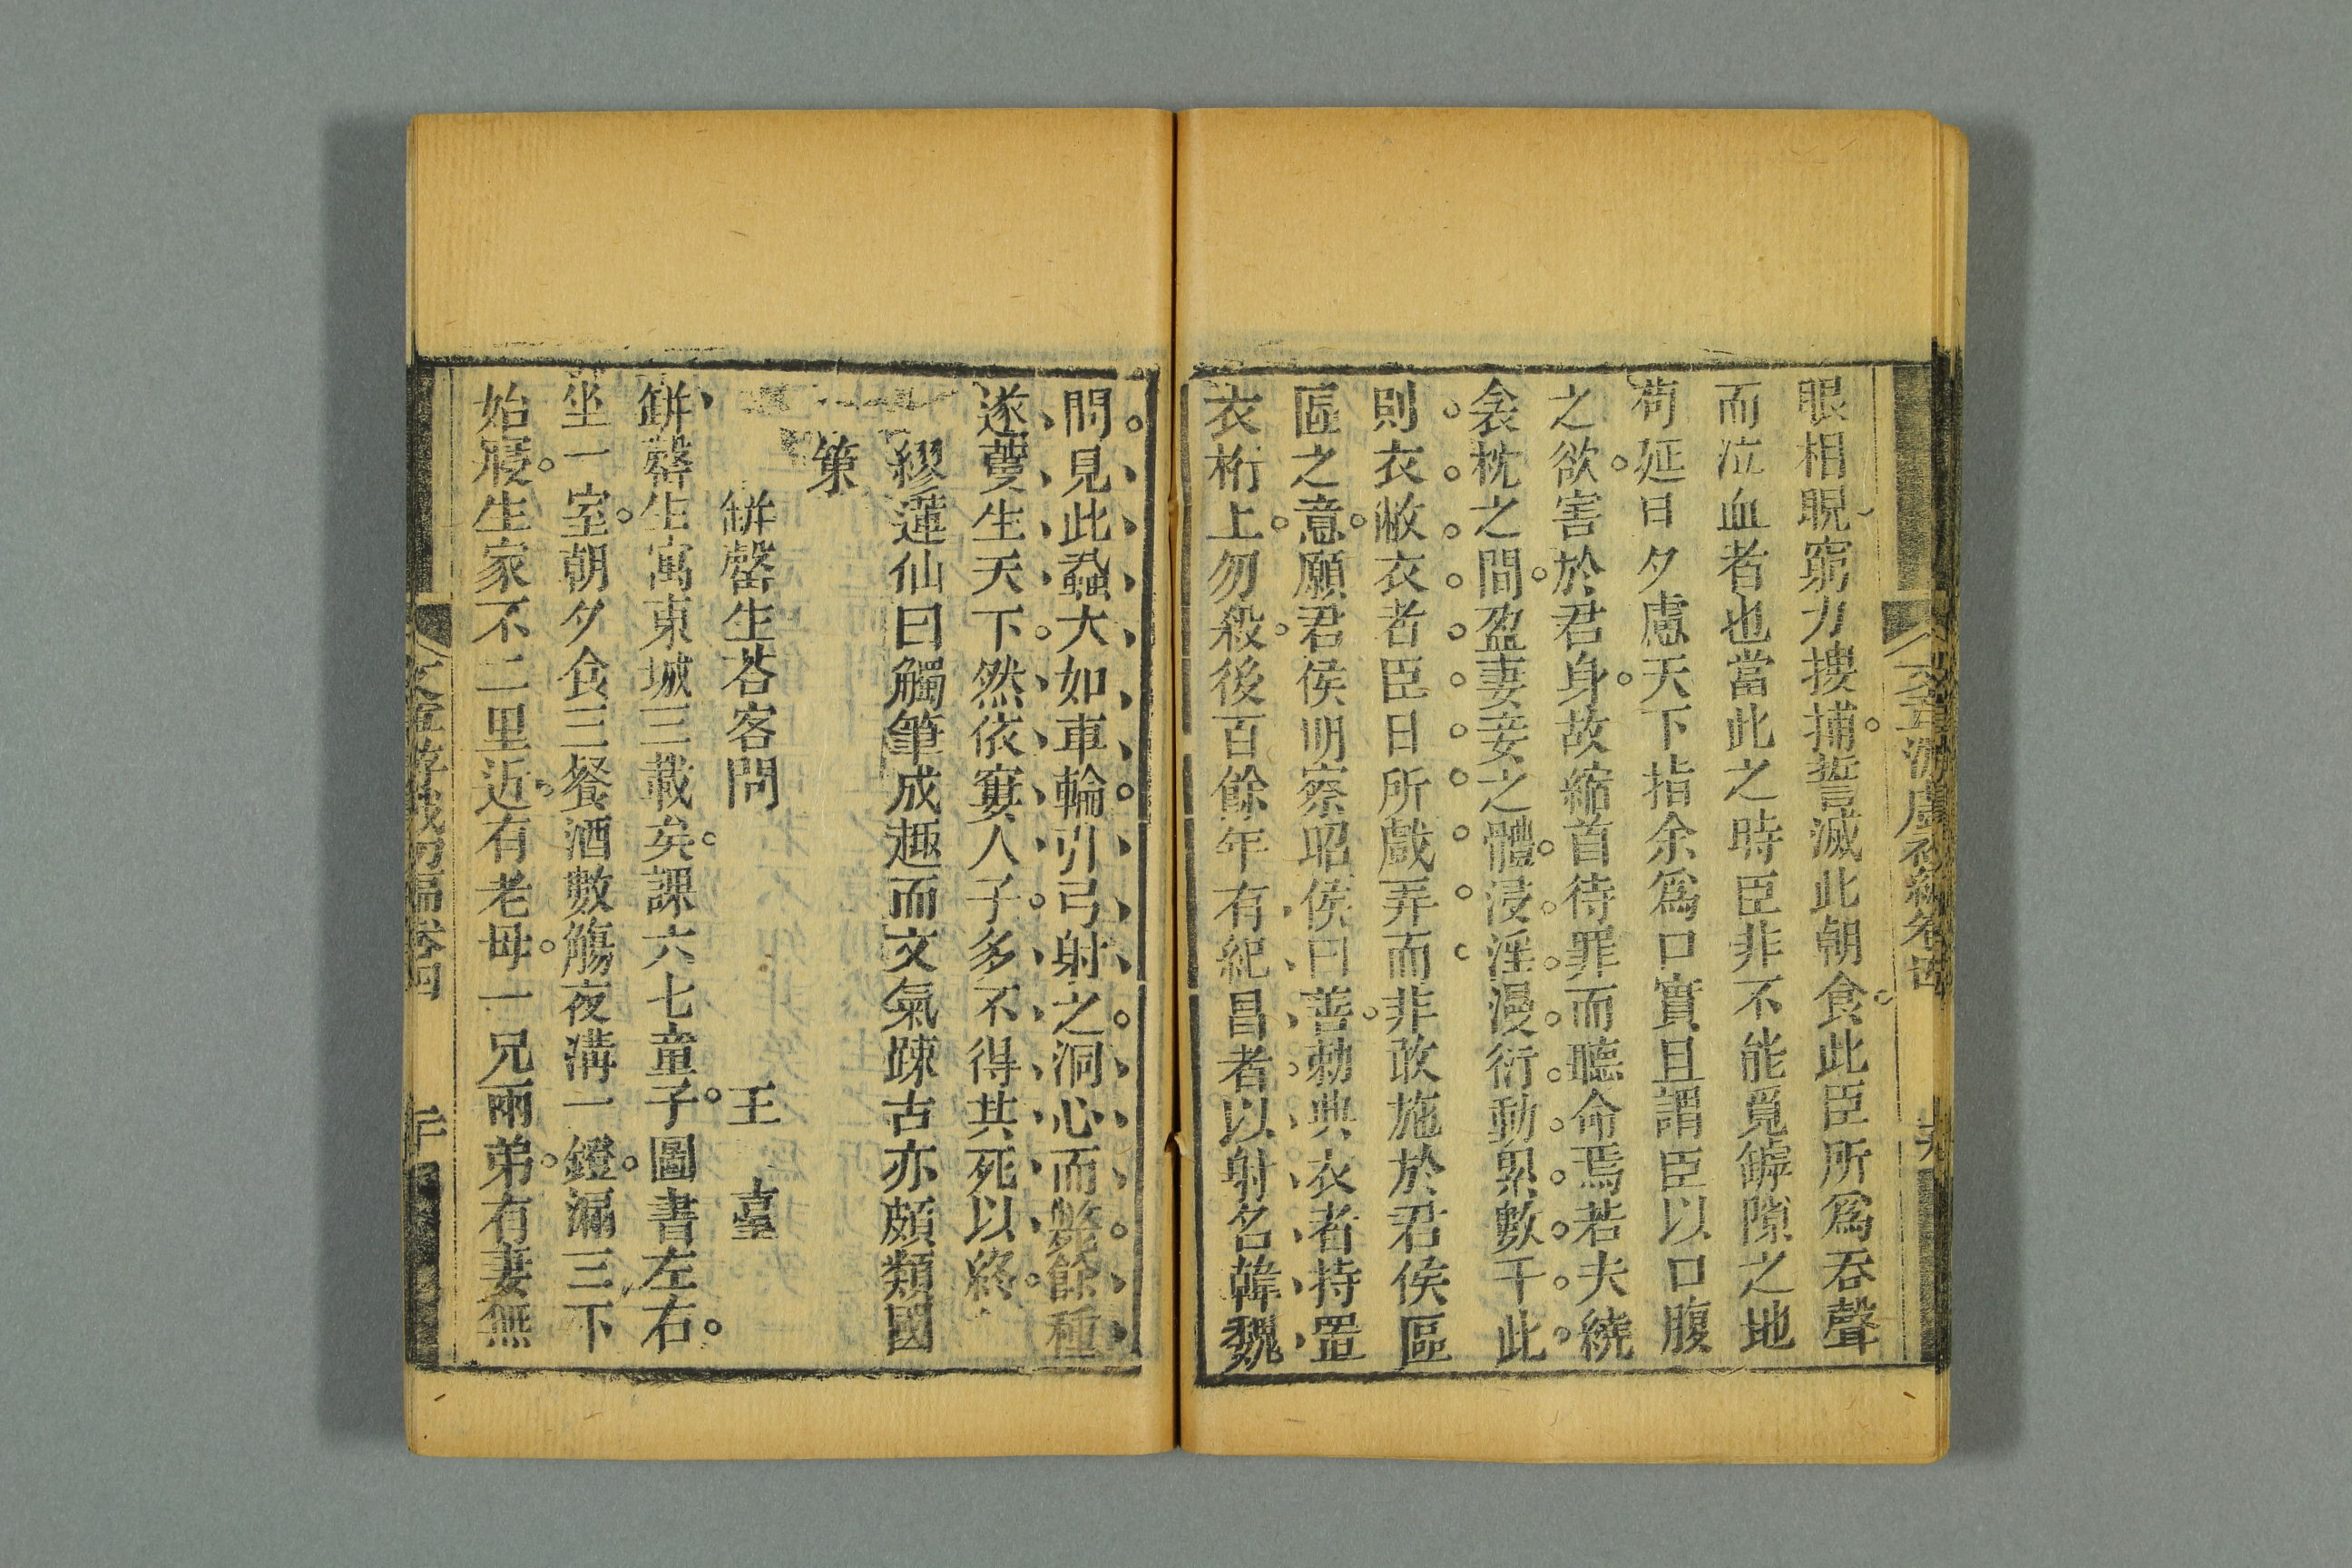 眼相睨窮力摟捕誓滅此朝食此臣所爲吞聲
而泣血者也當此之時臣非不能覓罅隙之地
苟延日夕慮天下指余爲口實且謂臣以口腹
之欲害於君身故縮首待罪而聽命焉若夫繞
衾枕之間盈妻妾之體浸淫漫衍動累數千此
則衣敝衣者臣日所戲弄而非敢施於君侯區
區之意願君侯明察昭侯曰善勅典衣者持置
衣桁上勿殺後百餘年有紀昌者以射名韓魏
問見此蝨大如車輪引弓射之洞心而斃餘種
遂蔓生天下然依窶人子多不得共死以終
繆蓮仙曰觸筆成趣而文氣踈古亦頗類國
策
缾罄生荅客問
王 臺
缾罄生寓東城三載矣課六七童子圖書左右
坐一室朝夕食三餐酒數觴夜溝一鐙漏三下
始寢生家不二里近有老母一兄兩弟有妻無
文章游戲初編卷四 二十